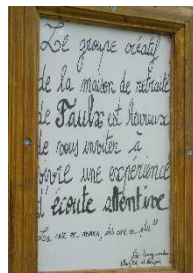 Le groupe créatif
de la maison de retraite
de Faulx est heureux
de vous inviter à
vivre une expérience
d'écoute attentive